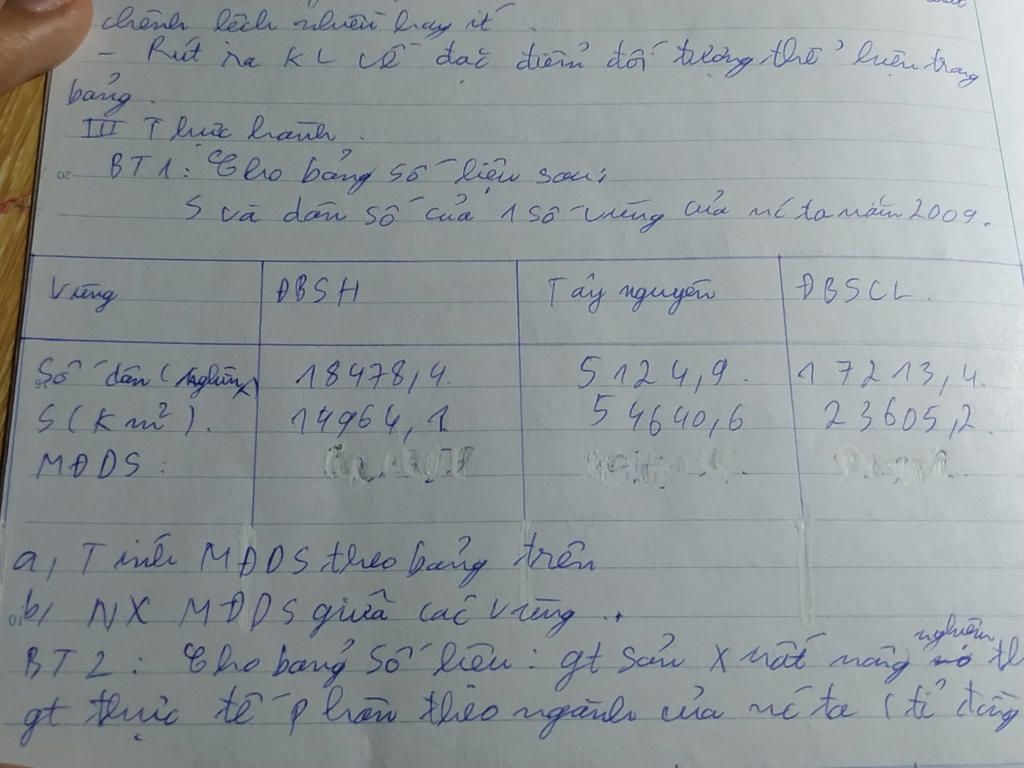 chênh lệch nhiều hay ít
- Rút ra KL về đặc điểm đối tượng thể hiện trong
bảng.
III Thực hành.
BT1: Cho bảng số liệu sau:
S và dân số của 1 số vùng của nc ta năm 2009.
Vùng ĐBSH Tây nguyên ĐBSCL.
Số dân (nghìn) 18478,4. 5124,9. 17213,4.
S(Km²). 14964,1 54640,6 23605,2
MĐDS:
a, Tính MĐDS theo bảng trên
b, NX MĐDS giữa các vùng.
BT2: Cho bảng số liệu: gt sản xuất nông nghiệp th
gt thực tế phân theo ngành của nc ta (tỉ đồng